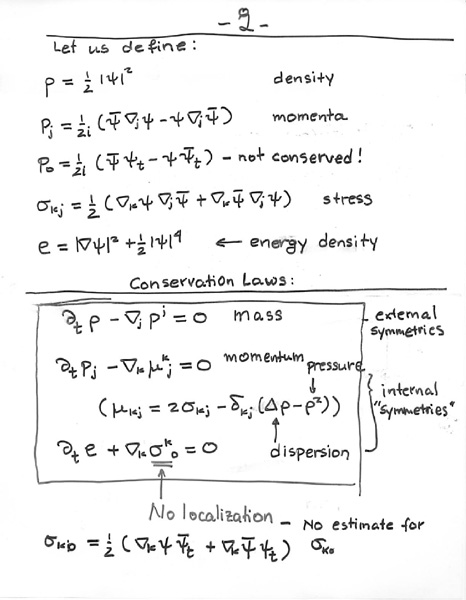 -2-
Let us define:
ρ = ½ |ψ|² density
Pⱼ = 1/2i (ψ̄ ∇ⱼ ψ - ψ ∇ⱼ ψ̄) momenta
P₀ = 1/2i (ψ̄ ψₜ - ψ ψ̄ₜ) - not conserved!
σₖⱼ = ½ (∇ₖψ ∇ⱼψ̄ + ∇ₖψ̄ ∇ⱼψ) stress
e = |∇ψ|² + ½|ψ|⁴ ← energy density
Conservation Laws:
∂ₜ ρ - ∇ⱼ pʲ = 0 mass
external
symmetrics
∂ₜ Pⱼ - ∇ₖ μᵏⱼ = 0 momentum
pressure
(μₖⱼ = 2σₖⱼ - δₖⱼ (Δρ - ρ²))
internal
"symmetries"
∂ₜ e + ∇ₖ σᵏ₀ = 0
dispersion
No localization - No estimate for
σₖ₀ = ½ (∇ₖψ ψ̄ₜ + ∇ₖψ̄ ψₜ) σₖ₀